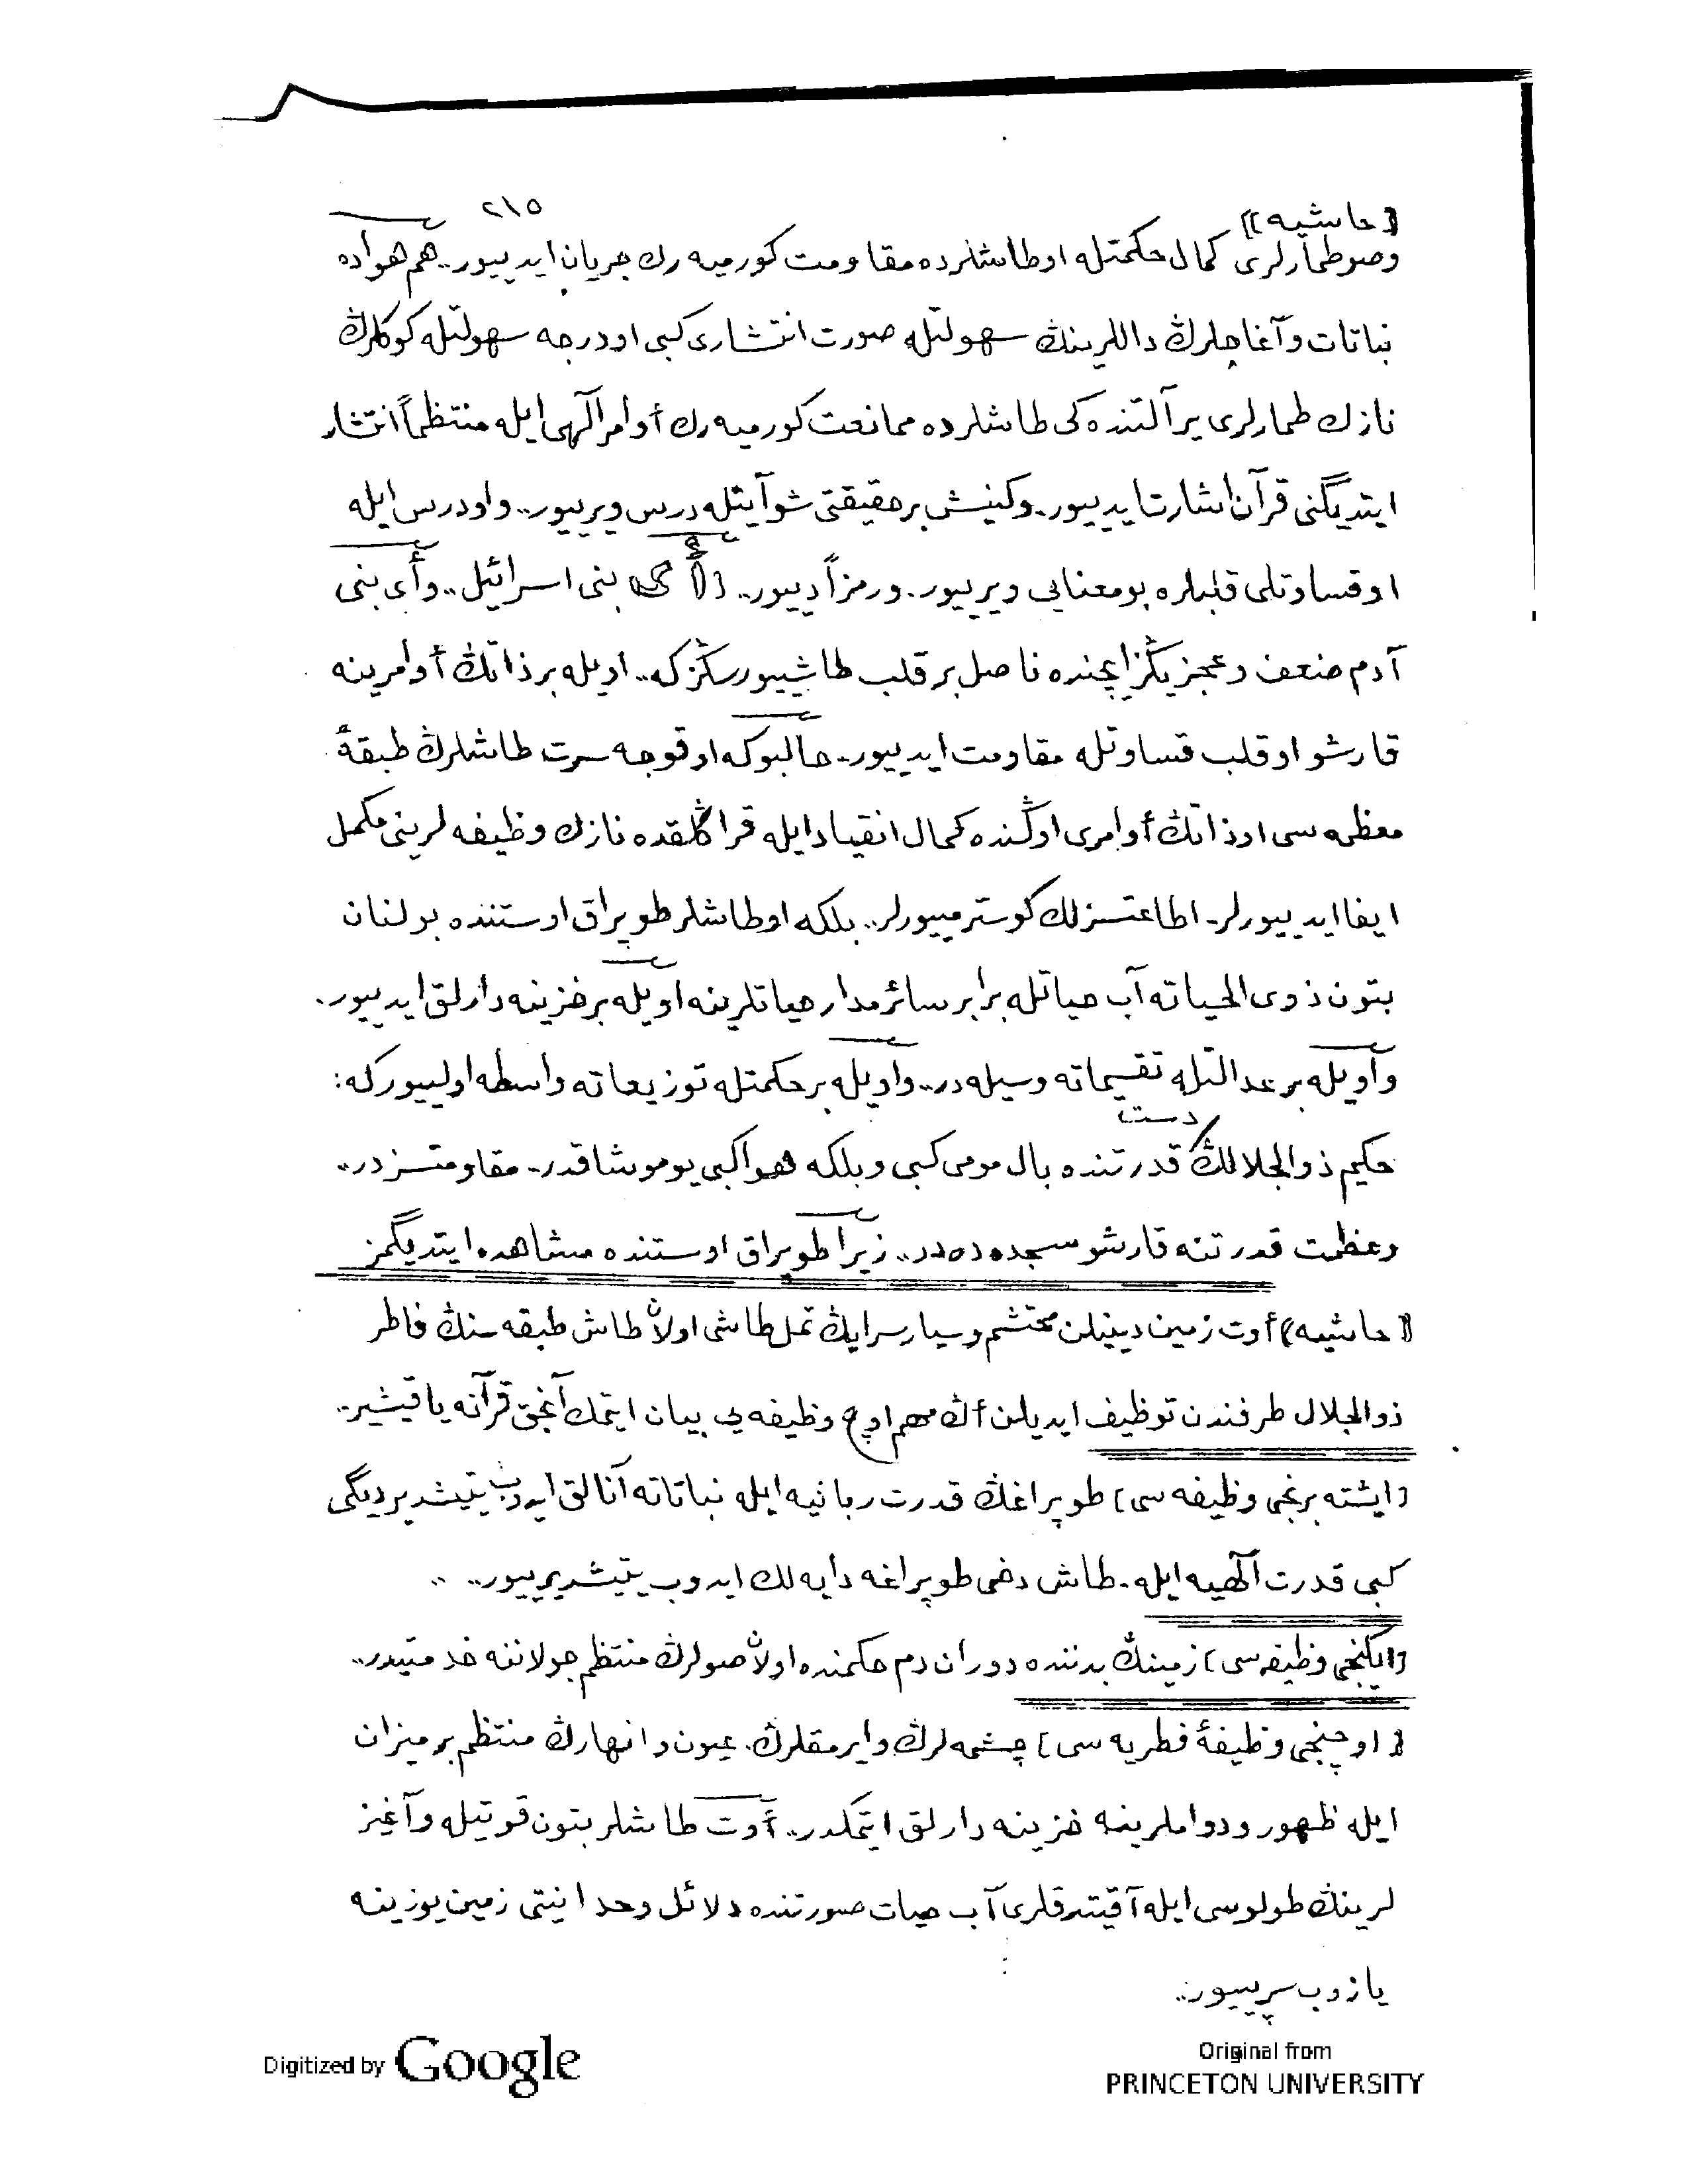 ٢١٥
[حاشيه))
وصو طمارلرى كمال حكمتله او طاشلرده مقاومت كورميه رك جريان ايدييور.. هم هواده
نباتات و آغاجلرڭ داللرينڭ سهولتله صورت انتشارى كبى او درجه سهولتله كوكلرڭ
نازك طمارلرى ير آلتنده كى طاشلرده ممانعت كورميه رك أوامر الٓهى ايله منتظماً انتشار
ايتديگنى قرآن اشارت ايدييور. و كنيش بر حقيقتى شو آيتله درس ويرييور.. و او درس ايله
او قساوتلى قلبلره بو معنايى ويرييور. و رمزاً دييور.. [أى بنى اسرائيل.. و أى بنى
آدم ضعف و عجزيڭز ايچنده ناصل بر قلب طاشييورسڭز كه.. اويله بر ذاتڭ أوامرينه
قارشو او قلب قساوتله مقاومت ايدييور. حالبوكه او قوجه سرت طاشلرڭ طبقۀ
معظمه سى او ذاتڭ أوامرى اوڭنده كمال انقياد ايله قراڭلقده نازك وظيفه لرينى مكمل
ايفا ايدييورلر. اطاعتسزلك كوسترمييورلر.. بلكه او طاشلر طوپراق اوستنده بولنان
بتون ذوى الحياته آب حياتله برابر سائر مدار حياتلرينه اويله بر خزينه دارلق ايدييور.
و اويله بر عدالتله تقسيماته وسيله در.. و اويله بر حكمتله توزيعاته واسطه اولييور كه:
حكيم ذوالجلالڭ دست قدرتنده بال مومى كبى و بلكه هوا كبى يوموشاقدر. مقاومتسزدر..
و عظمت قدرتنه قارشو سجده ده در.. زيرا طوپراق اوستنده مشاهده ايتديگمز
[حاشيه) أوت زمين دينيلن محتشم و سيار سرايڭ تمل طاشى اولان طاش طبقه سنڭ فاطر
ذوالجلال طرفندن توظيف ايديلن أڭ مهم اوچ وظيفه يى بيان ايتمك آنجق قرآنه ياقيشير..
[ايشته برنجى وظيفه سى] طوپراغڭ قدرت ربانيه ايله نباتاته آنالق ايدوب يتيشديرديگى
كبى قدرت الٓهيه ايله. طاش دخى طوپراغه دايه لك ايدوب يتيشديرييور..
[ايكنجى وظيفه سى] زمينڭ بدننده دوران دم حكمنده اولان صولرڭ منتظم جولاننه خدمتيدر..
[اوچنجى وظيفۀ فطريه سى] چشمه لرڭ و ايرمقلرڭ. عيون و انهارڭ منتظم بر ميزان
ايله ظهور و دواملرينه خزينه دارلق ايتمكدر.. أوت طاشلر بتون قوتيله و آغيز
لرينڭ طولوسى ايله آقيتدقلرى آب حيات صورتنده دلائل وحدانيتى زمين يوزينه
يازوب سرپييور..
Digitized by Google
Original from
PRINCETON UNIVERSITY